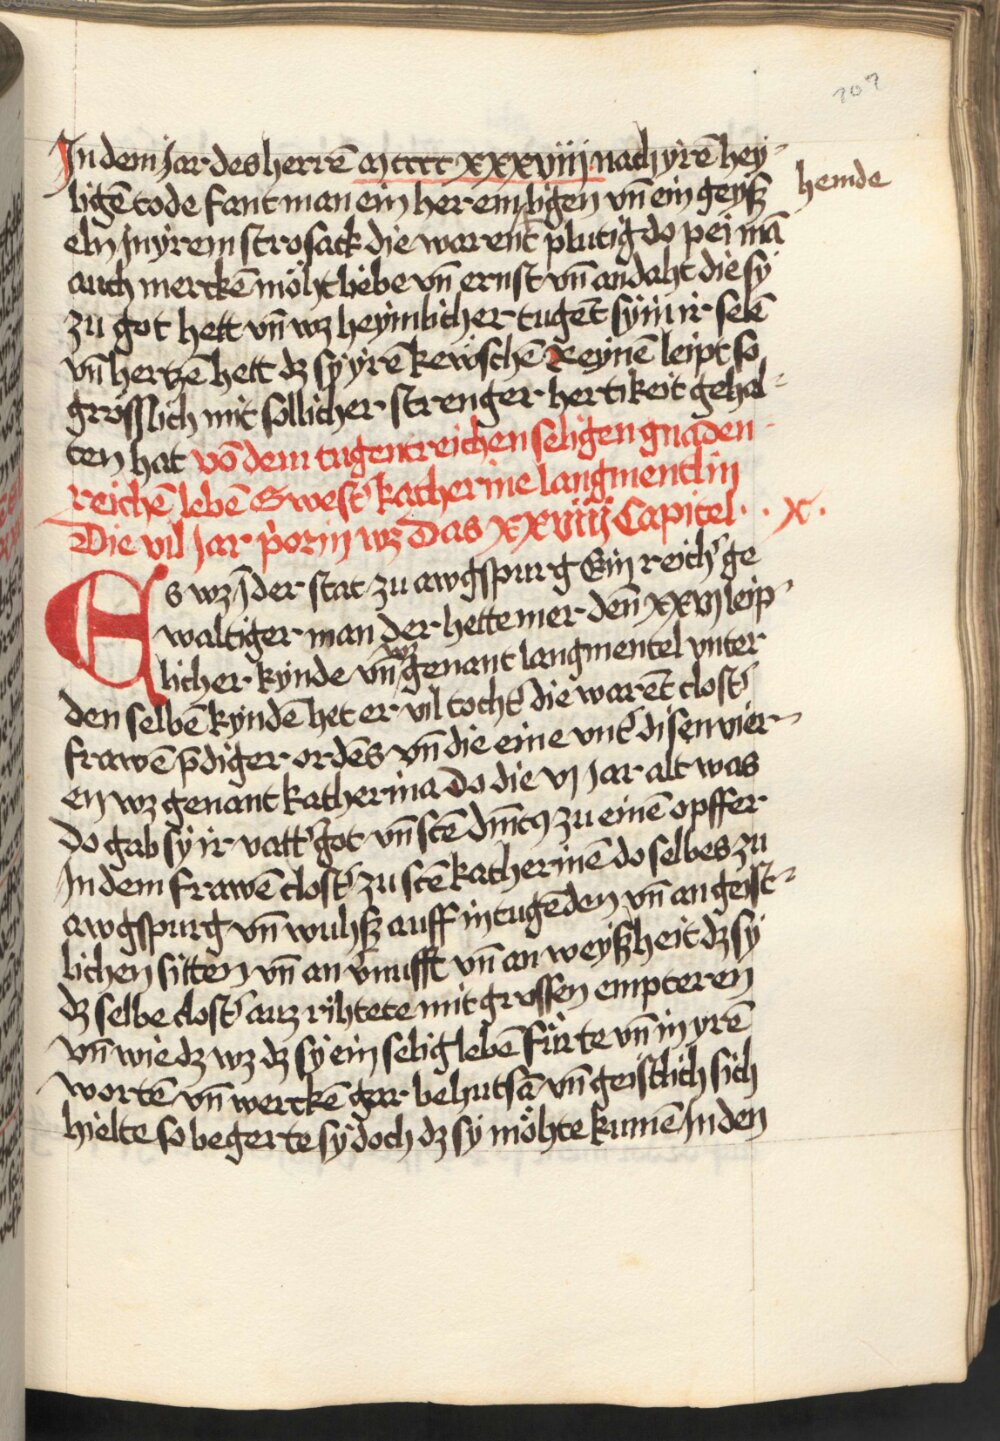 207
In dem Jar des herrē M cccc xxxviij nach yrē hey-
ligē tode fant man ein heremligen vn̄ ein geysz
hemde
eln Jn yrem strosack die warent plutig do pei mā
auch merckē möht liebe vn̄ ernst vn̄ andaht die sy
zu got hett vn̄ wz heymlicher tugēt sy in ir selē
vn̄ hertzē hett dz sy yrē kewschē Reynē leipt so
grösslich mit sollicher strenger hertikeit gehal-
ten hat vō dem tugentreichen seligen gnaden
reichē lebē Swest' katherine langmentlin
Die vil Jar p'orin wz Das xxviiij Capitel . . X .
Es wz ī der stat zu awgspurg Ein reich' ge
waltiger man der hette mer den̄ xxvj leip-
licher kynde vn̄ wz genant langmentel vnter
den selbē kyndē het er vil tocht' die warēt clost'
frawē p̄diger ordēs vn̄ die eine vnt' disen vier-
en wz genant katherina do die vj Jar alt was
do gab sy ir vatt' got vn̄ scē dm̄cꝯ zu einē opffer
Jn dem frawē clost' zu scē katherinē do selbes zu
awgspurg vn̄ wuhsz auff in tugēden vn̄ an geist-
lichen sitten vn̄ an v'nufft vn̄ an weyszheit dz sy
dz selbe clost' auz rihtete mit grossen empteren
vn̄ wie dz wz dz sy ein selig lebē fürte vn̄ in yrē
wortē vn̄ werckē gar behutsā vn̄ geistlich sich
hielte so begerte sy doch dz sy möhte kumē Jn den